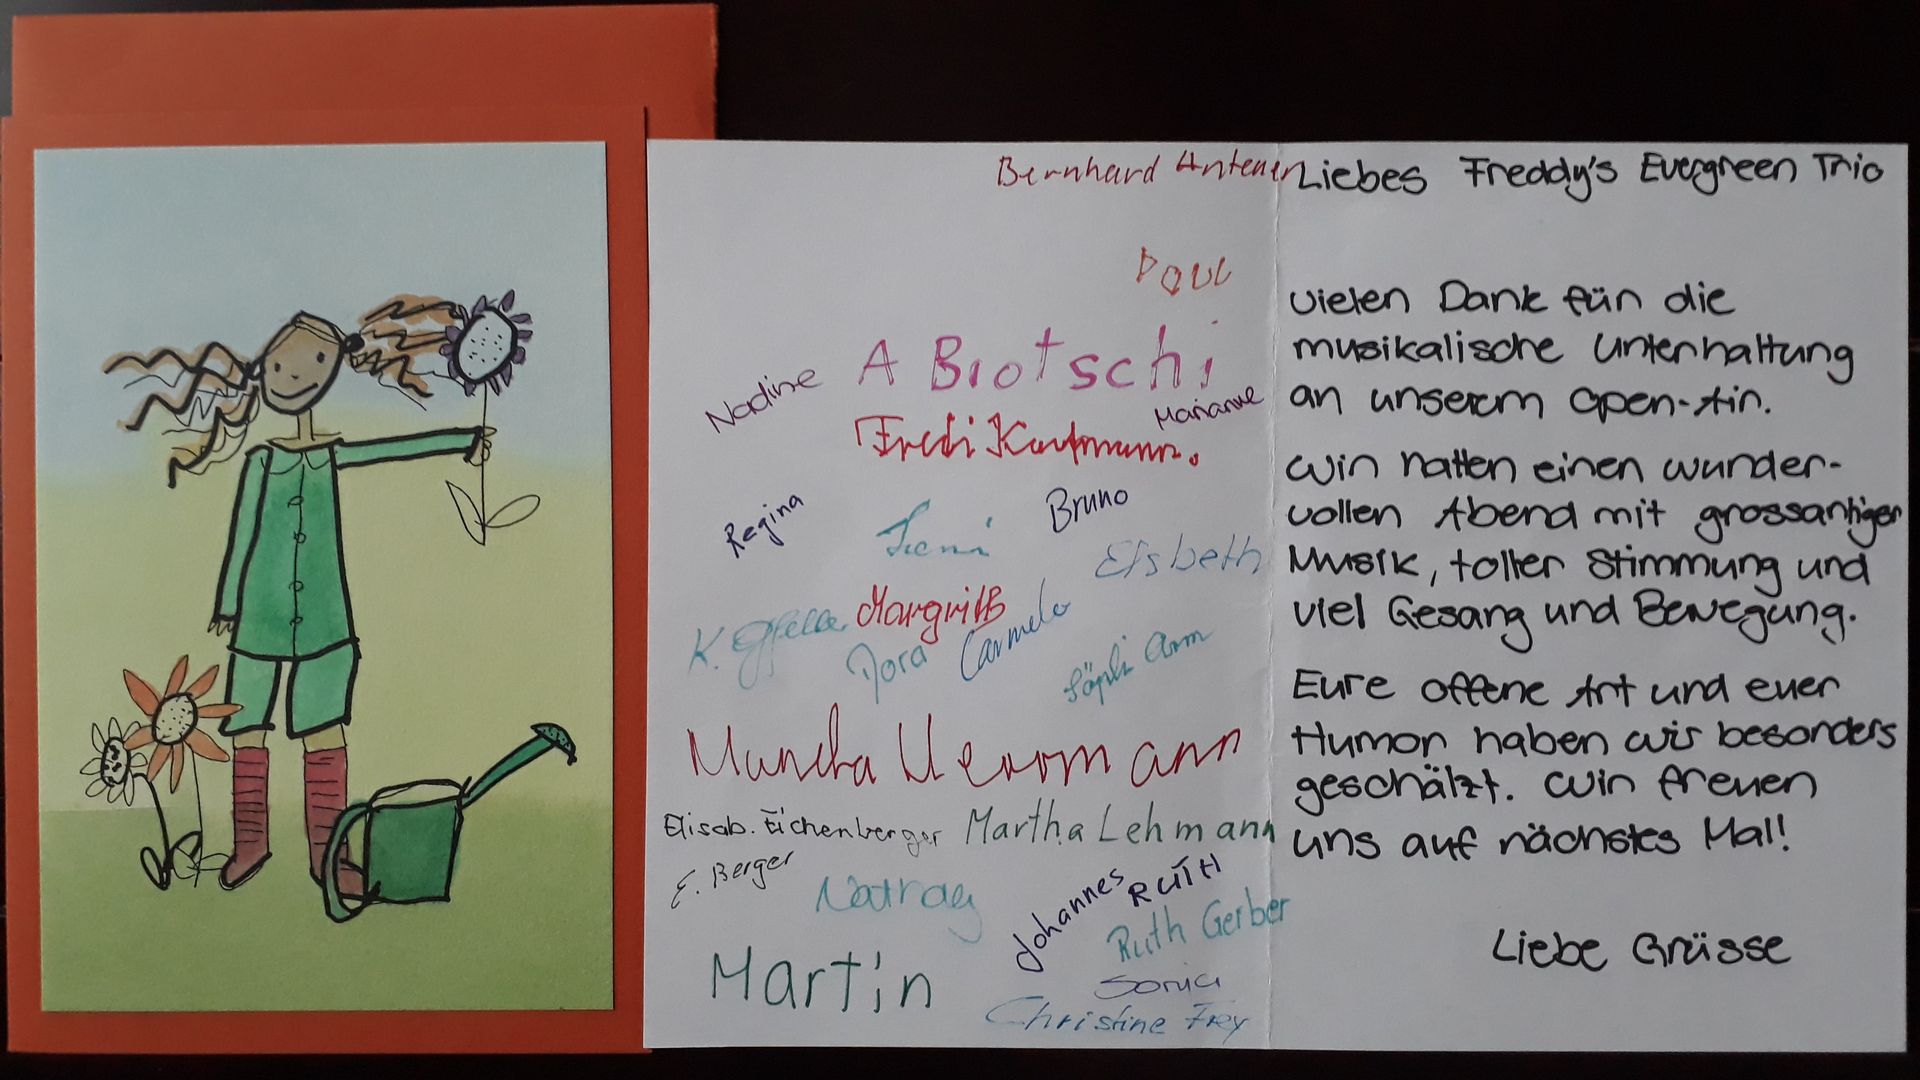 Bernhard Antener
Paul
A Brotschi
Nadine
Marianne
Fredi Kaufmann.
Regina
Bruno
Elsbeth
Margrith
K. Gfeller
Dora
Carmela
Elisab. Eichenberger
Martha Lehmann
E. Berger
Johannes
RUTH
Ruth Gerber
Martin
Sonia
Christine Frey
Liebes Freddy's Evergreen Trio
vielen Dank für die
musikalische Unterhaltung
an unserem Open-Air.
Wir hatten einen wunder-
vollen Abend mit grossartiger
Musik, toller Stimmung und
viel Gesang und Bewegung.
Eure offene Art und euer
Humor haben wir besonders
geschätzt. Wir freuen
uns auf nächstes Mal!
Liebe Grüsse